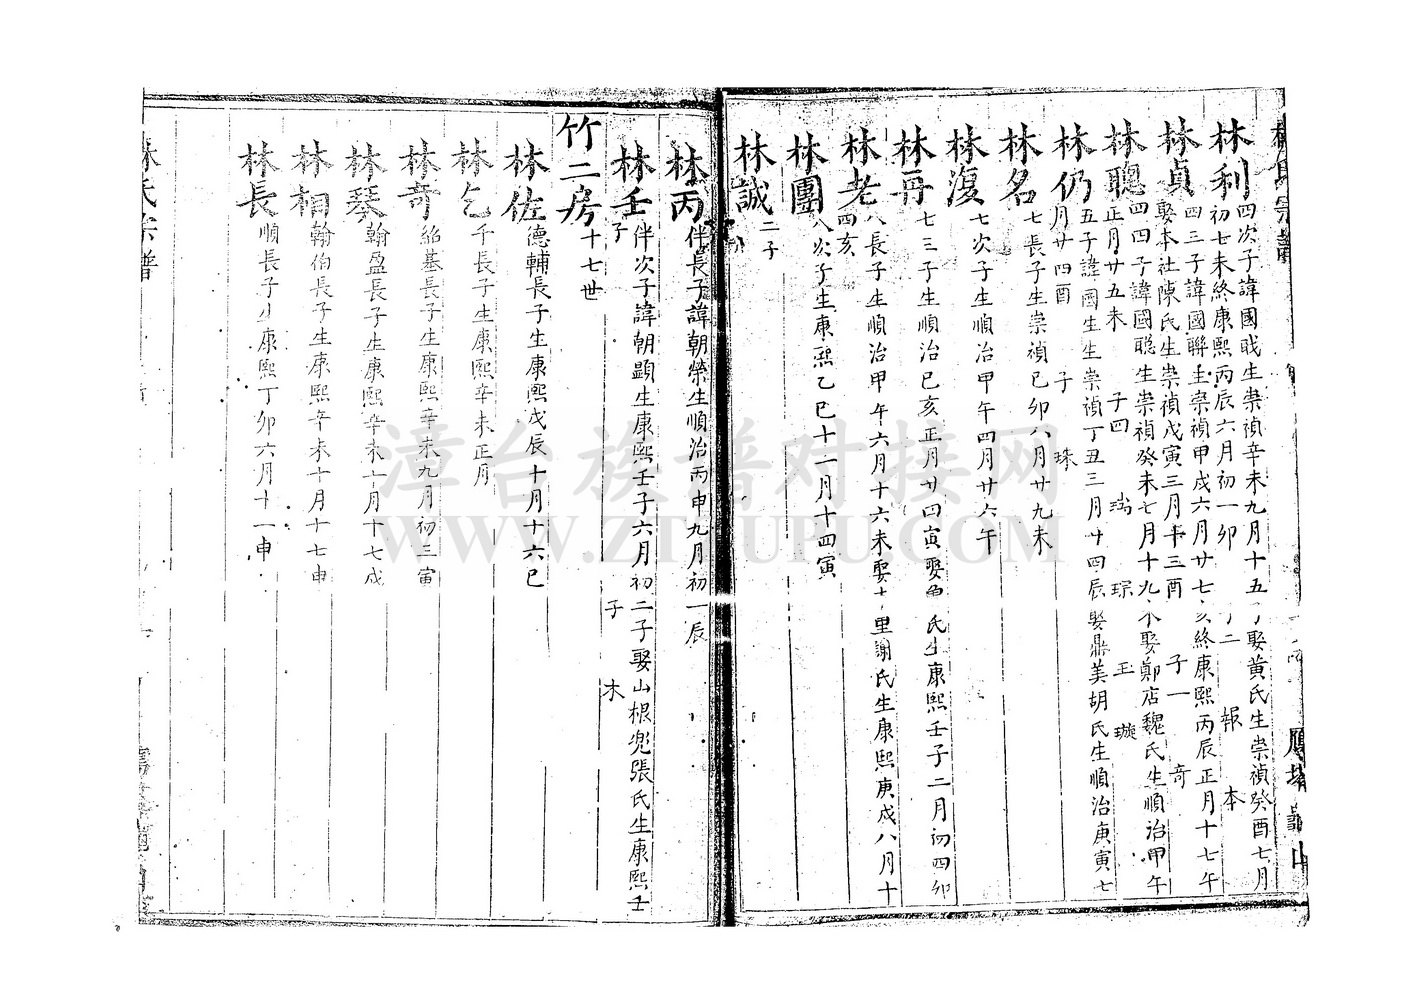 林利 四次子諱國戝生崇禎辛未九月十五 娶黄氏生崇禎癸酉七月
初七未終康熙丙辰六月初一卯 二 報 本
林貞 四三子諱國聨生崇禎甲戌六月廿七 終康熙丙辰正月十七午
娶本社陳氏生崇禎戊寅三月十三酉 子一 奇
林聰 四四子諱國聡生崇禎癸未七月十九 娶鄭店魏氏生順治甲午
正月廿五未 子四 瑞 琮 玉 璇
林仍 五子諱國生生崇禎丁丑三月廿四辰娶鼎美胡氏生順治庚寅七
月廿四酉 子 珠
林名 七長子生崇禎己卯八月廿九未
林復 七次子生順治甲午四月廿六午
林再 七三子生順治己亥正月廿四寅娶 氏生康熙壬子二月初四卯
林老 八長子生順治甲午六月十六未娶 里謝氏生康熙庚戌八月十
四亥
林團 八次子生康熙乙巳十一月十四寅
林誠 二子
林丙 伴長子諱朝榮生順治丙申九月初一辰
林壬 伴次子諱朝顕生康熙壬子六月初二子娶山根兜張氏生康熙壬
子 子 木
竹二房 十七世
林佐 德輔長子生康熙戊辰十月十六巳
林乞 千長子生康熙辛未正月
林奇 紹基長子生康熙辛未九月初三寅
林琴 翰盈長子生康熙辛未十月十七戌
林相 翰伯長子生康熙辛未十月十七申
林長 順長子生康熙丁卯六月十一申
林氏宗譜
漳台族谱对接网
WWW.ZTZUPU.COM